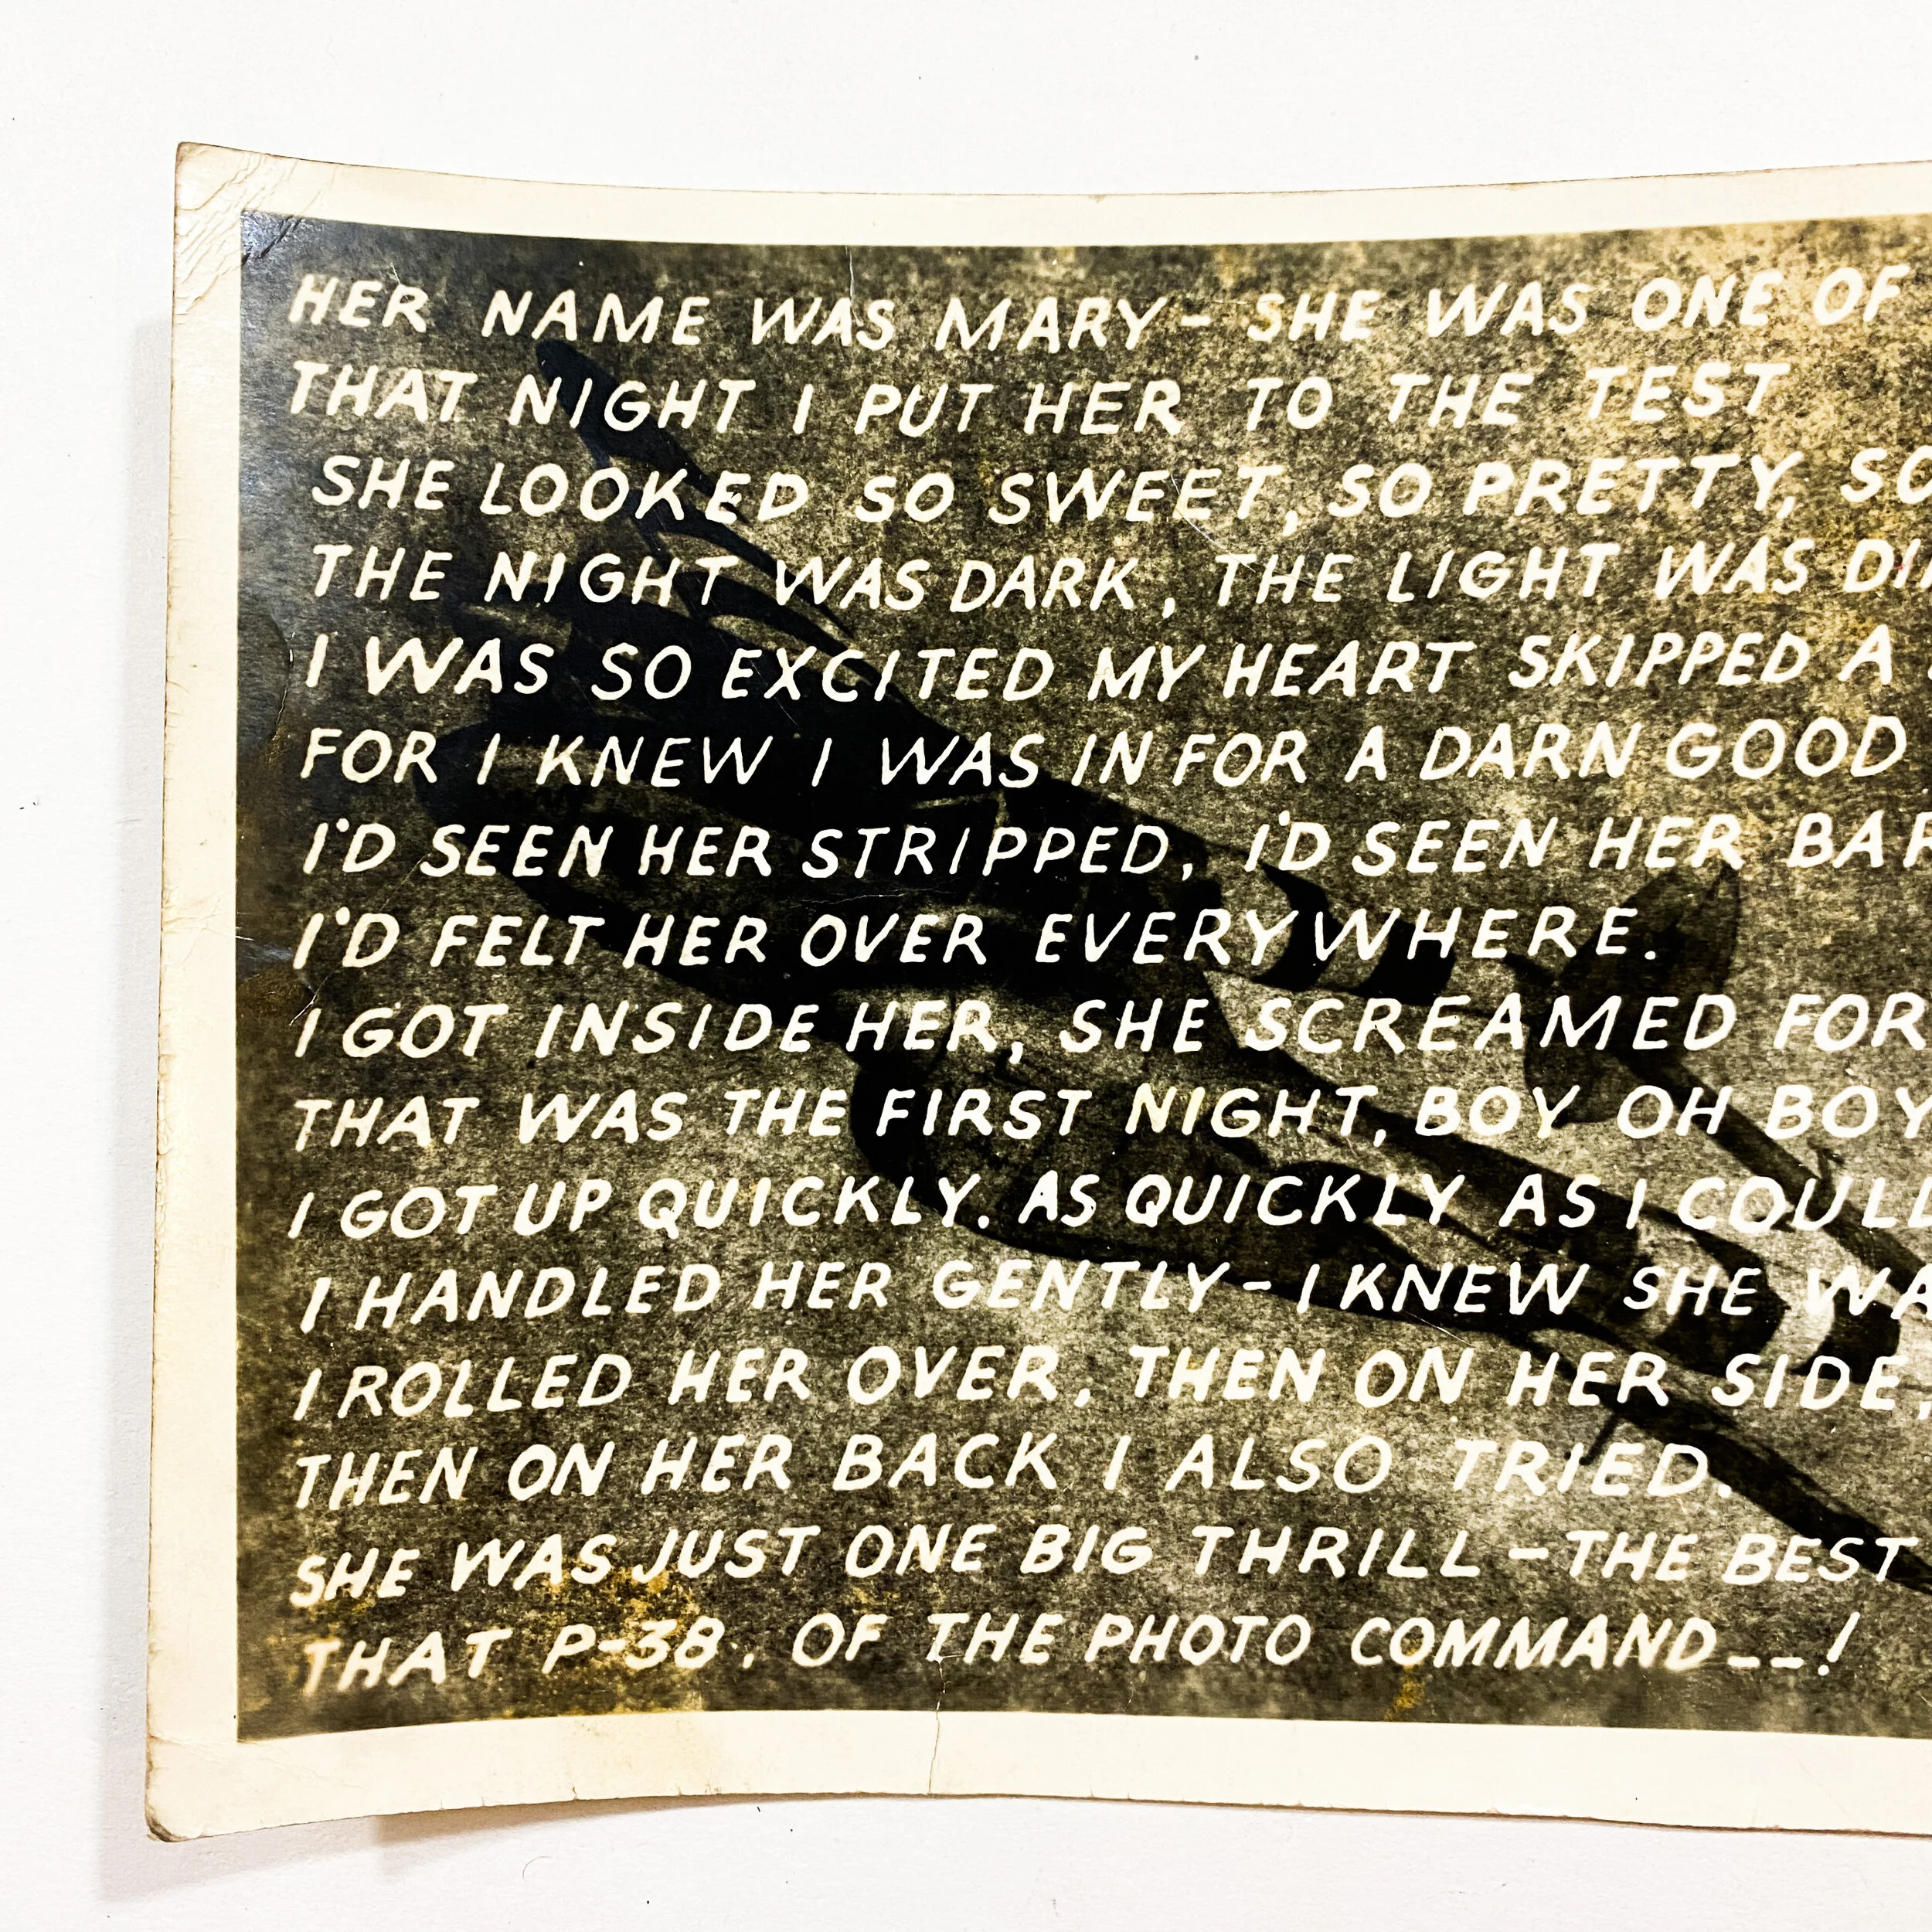 HER NAME WAS MARY - SHE WAS ONE OF
THAT NIGHT I PUT HER TO THE TEST
SHE LOOKED SO SWEET, SO PRETTY, SO
THE NIGHT WAS DARK, THE LIGHT WAS
I WAS SO EXCITED MY HEART SKIPPED A
FOR I KNEW I WAS IN FOR A DARN GOOD
I'D SEEN HER STRIPPED, I'D SEEN HER
I'D FELT HER OVER EVERYWHERE.
I GOT INSIDE HER, SHE SCREAMED FOR
THAT WAS THE FIRST NIGHT, BOY OH BOY
I GOT UP QUICKLY. AS QUICKLY AS I
I HANDLED HER GENTLY - I KNEW SHE
I ROLLED HER OVER, THEN ON HER SIDE,
THEN ON HER BACK I ALSO TRIED.
SHE WAS JUST ONE BIG THRILL - THE BEST
THAT P-38. OF THE PHOTO COMMAND--!